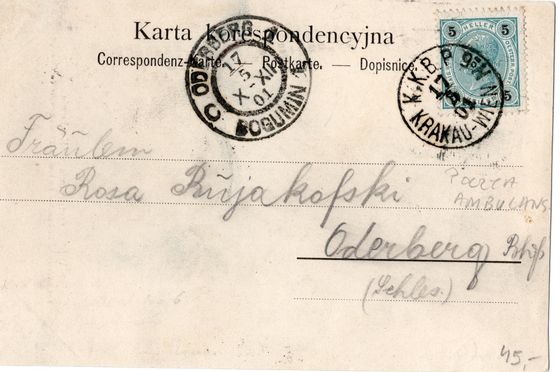 Karta korespondencyjna
Correspondenz-Karte. — Postkarte. — Dopisnice.
ODERBERG
17
5
X-XII
01
BOGUMIN
5 HELLER 5
5 5
K.K.B.P. 95N
KRAKAU-WIEN
Fräulein
Rosa Bujakofski
POCZTA
AMBULANS
Oderberg Bhf
(Schles.)
45,-